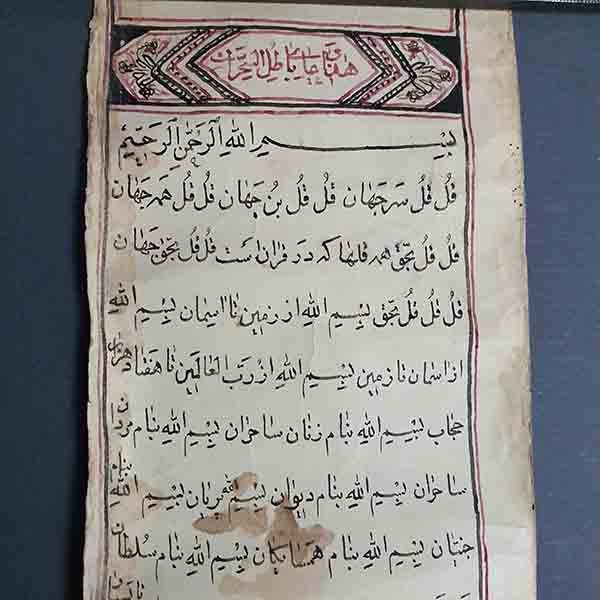 هفتاد باب باطل السحر
بسم الله الرحمن الرحیم
قُل قُل سَر جَهان قُل قُل بُن جَهان قُل قُل همه جَهان
قُل قُل بحَق همه قلها که در قران است قُل قُل بحق جَهان
قُل قُل قُل بحق بسم الله از زمین تا اسمان بسم الله
از اسمان تا زمین بسم الله از رَبّ العالمین تا هفتاد هزار
حجاب بسم الله بنام زنان ساحران بسم الله بنام مردان
ساحران بسم الله بنام دیوان بسم الله پریان بسم الله بنام
جنیان بسم الله بنام همسایکان بسم الله بنام سُلطان